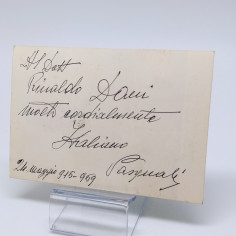 Al Dott
Rinaldo Dani
molto cordialmente
Italiano
Pasquali
24. maggio 915-969